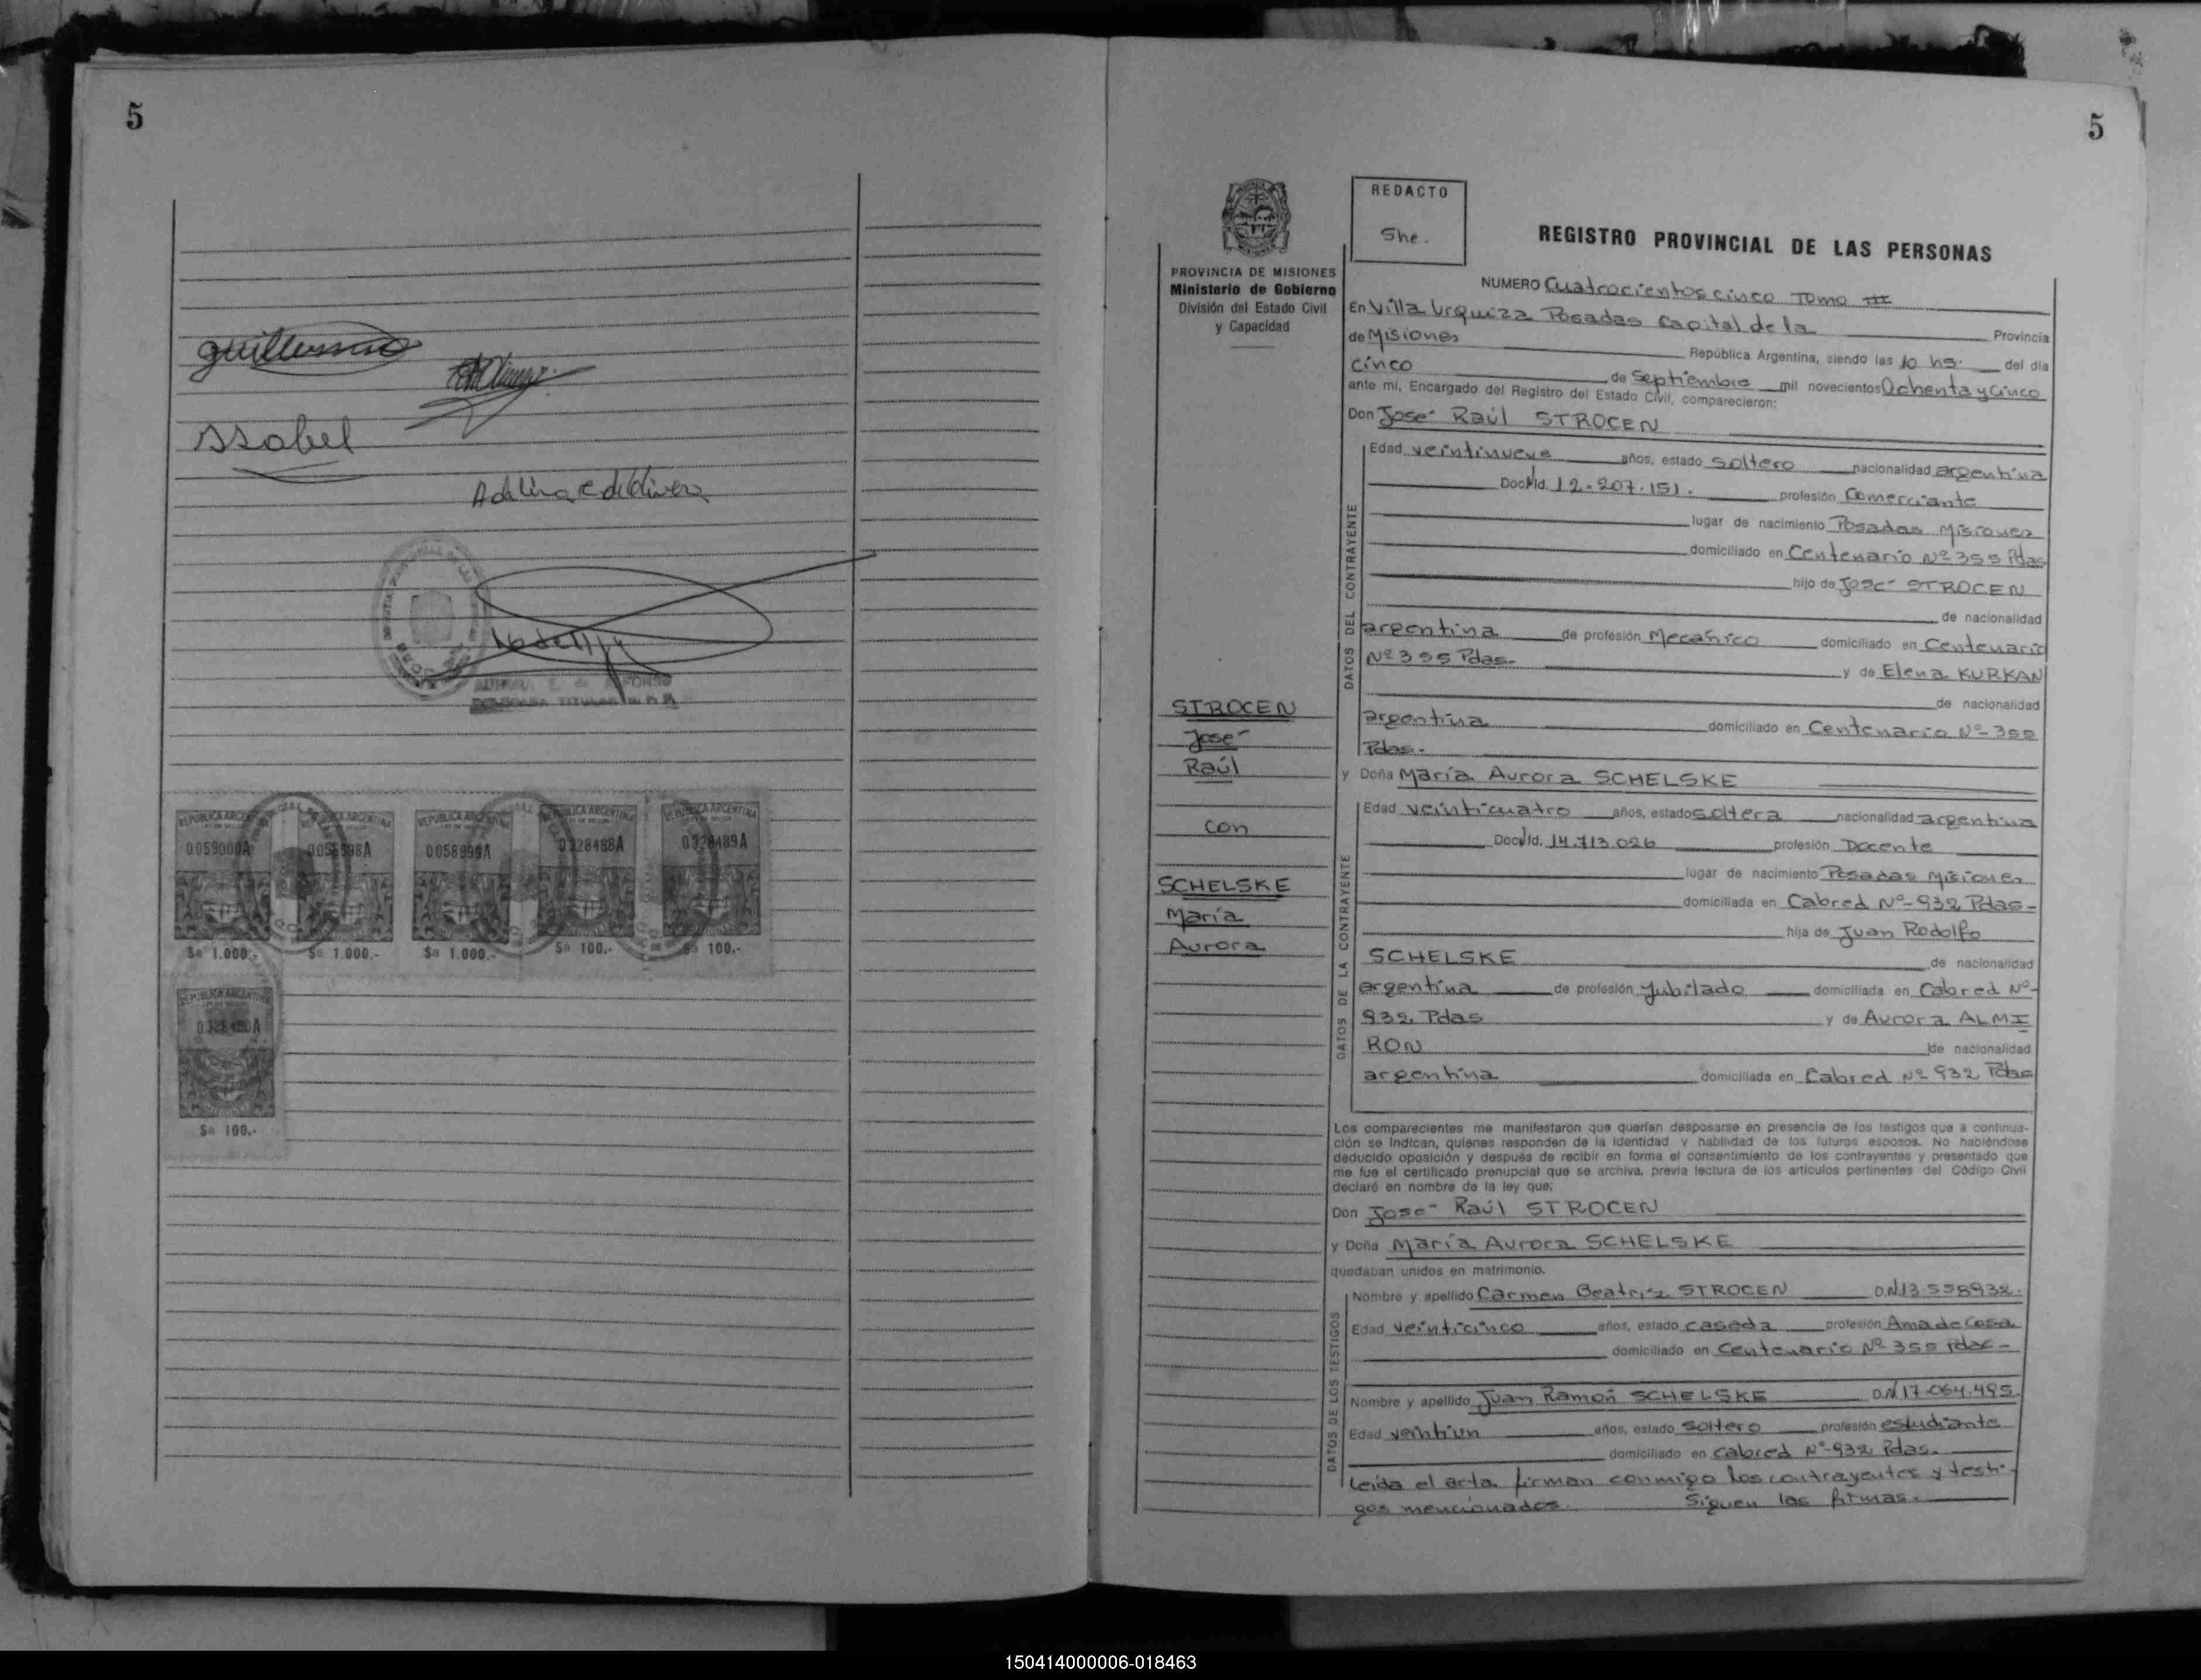 5
guillermo
Issabel
Adelina e de Olivera
REPUBLICA ARGENTINA
0059000A
Sa 1.000.-
REPUBLICA ARGENTINA
Sa 1.000.-
REPUBLICA ARGENTINA
0058999A
Sa 1.000.-
REPUBLICA ARGENTINA
0328488A
Sa 100.-
REPUBLICA ARGENTINA
0328489A
Sa 100.-
REPUBLICA ARGENTINA
Sa 100.-
5
PROVINCIA DE MISIONES
Ministerio de Gobierno
División del Estado Civil
y Capacidad
REDACTO
She.
REGISTRO PROVINCIAL DE LAS PERSONAS
NUMERO Cuatrocientos cinco Tomo III
En Villa Urquiza Posadas Capital de la Provincia
de Misiones República Argentina, siendo las 10 hs. del día
cinco de Septiembre mil novecientos Ochenta y cinco
ante mí, Encargado del Registro del Estado Civil, comparecieron:
Don José Raúl STROCEN
Edad veintinueve años, estado soltero nacionalidad argentina
Doc. Id. 12.207.151. profesión Comerciante
lugar de nacimiento Posadas Misiones
domiciliado en Centenario Nº 355 Pdas
hijo de José STROCEN
de nacionalidad
argentina de profesión Mecánico domiciliado en Centenario
Nº 355 Pdas. y de Elena KURKAN
de nacionalidad
argentina domiciliado en Centenario Nº 355
Pdas.
DATOS DEL CONTRAYENTE
STROCEN
José
Raúl
con
SCHELSKE
María
Aurora
y Doña María Aurora SCHELSKE
Edad veinticuatro años, estado soltera nacionalidad argentina
Doc. Id. 14.713.026 profesión Docente
lugar de nacimiento Posadas Misiones
domiciliada en Cabred Nº 932 Pdas-
hija de Juan Rodolfo
SCHELSKE de nacionalidad
argentina de profesión Jubilado domiciliada en Cabred Nº
932 Pdas y de Aurora ALMI
RON de nacionalidad
argentina domiciliada en Cabred Nº 932 Pdas
DATOS DE LA CONTRAYENTE
Los comparecientes me manifestaron que querían desposarse en presencia de los testigos que a continua-
ción se indican, quienes responden de la identidad y habilidad de los futuros esposos. No habiéndose
deducido oposición y después de recibir en forma el consentimiento de los contrayentes y presentado que
me fue el certificado prenupcial que se archiva, previa lectura de los artículos pertinentes del Código Civil
declaré en nombre de la ley que:
Don José Raúl STROCEN
y Doña María Aurora SCHELSKE
quedaban unidos en matrimonio.
Nombre y apellido Carmen Beatriz STROCEN D.N.I 13.558932.
Edad veinticinco años, estado casada profesión Ama de Casa
domiciliado en Centenario Nº 355 Pdas-
Nombre y apellido Juan Ramón SCHELSKE D.N.I 17.064.495.
Edad veintiun años, estado soltero profesión estudiante
domiciliado en Cabred Nº 932 Pdas.
DATOS DE LOS TESTIGOS
Leída el acta firman conmigo los contrayentes y testi-
gos mencionados. Siguen las firmas.
150414000006-018463